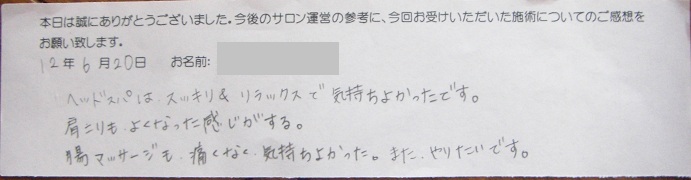 本日は誠にありがとうございました。今後のサロン運営の参考に、今回お受けいただいた施術についてのご感想を
お願い致します。
12年6月20日 お名前:
ヘッドスパは、スッキリ&リラックスで気持ちよかったです。
肩こりも、よくなった感じがする。
腸マッサージも、痛くなく、気持ちよかった。また、やりたいです。